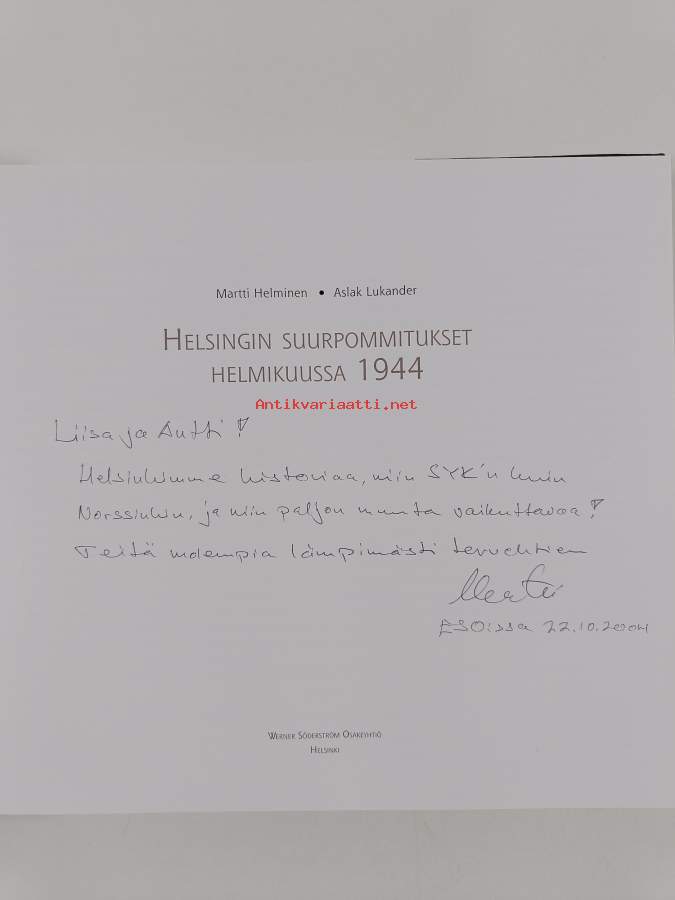 Martti Helminen • Aslak Lukander
HELSINGIN SUURPOMMITUKSET
HELMIKUUSSA 1944
Antikvariaatti.net
Liisa ja Antti!
Helsinkimme historiaa, niin SYK'n kuin
Norssinkin, ja niin paljon muuta vaikuttavaa!
Teitä molempia lämpimästi tervehtien
Martti
ESOissa 22.10.2004
WERNER SÖDERSTRÖM OSAKEYHTIÖ
HELSINKI